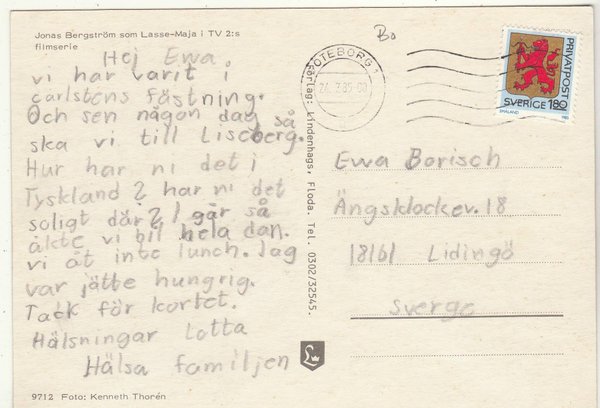 Jonas Bergström som Lasse-Maja i TV 2:s
filmserie
Hej Ewa.
vi har varit i
carlstens fästning.
Och sen någon dag så
ska vi till Liseberg.
Hur har ni det i
Tyskland? har ni det
soligt där? I går så
åkte vi bil hela dan.
vi åt inte lunch. Jag
var jätte hungrig.
Tack för kortet.
Hälsningar Lotta
Hälsa familjen
9712 Foto: Kenneth Thorén
Förlag: Lindenhags, Floda. Tel. 0302/32545.
Bo
GÖTEBORG 1
PRIVATPOST
SVERIGE 180
SMÅLAND
Ewa Borisch
Ängsklockev. 18
18161 Lidingö
Sverge